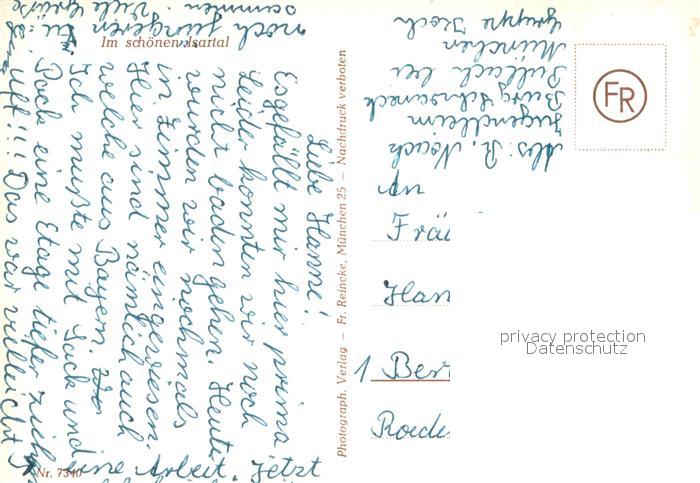 Im schönen Isartal
Liebe Hanne!
Es gefällt mir hier prima
Leider konnten wir noch
nicht baden gehen. Heute
wurden wir nochmals
in Zimmer eingewiesen.
Hier sind nämlich auch
welche aus Bayern.
Ich mußte mit Sack und
Pack eine Etage tiefer
Uff!!! Das war vielleicht
eine Arbeit. Jetzt
noch jüngeren zu
sammen. Viele Grüße
Nr. 7340
Photograph. Verlag – Fr. Reincke, München 25 – Nachdruck verboten
Abs: R. Noack
Jugendheim
Burg Schwaneck
Pullach bei
München
Gruppe Koch
FR
An
Fräu
Han
1 Ber
Roede
privacy protection
Datenschutz